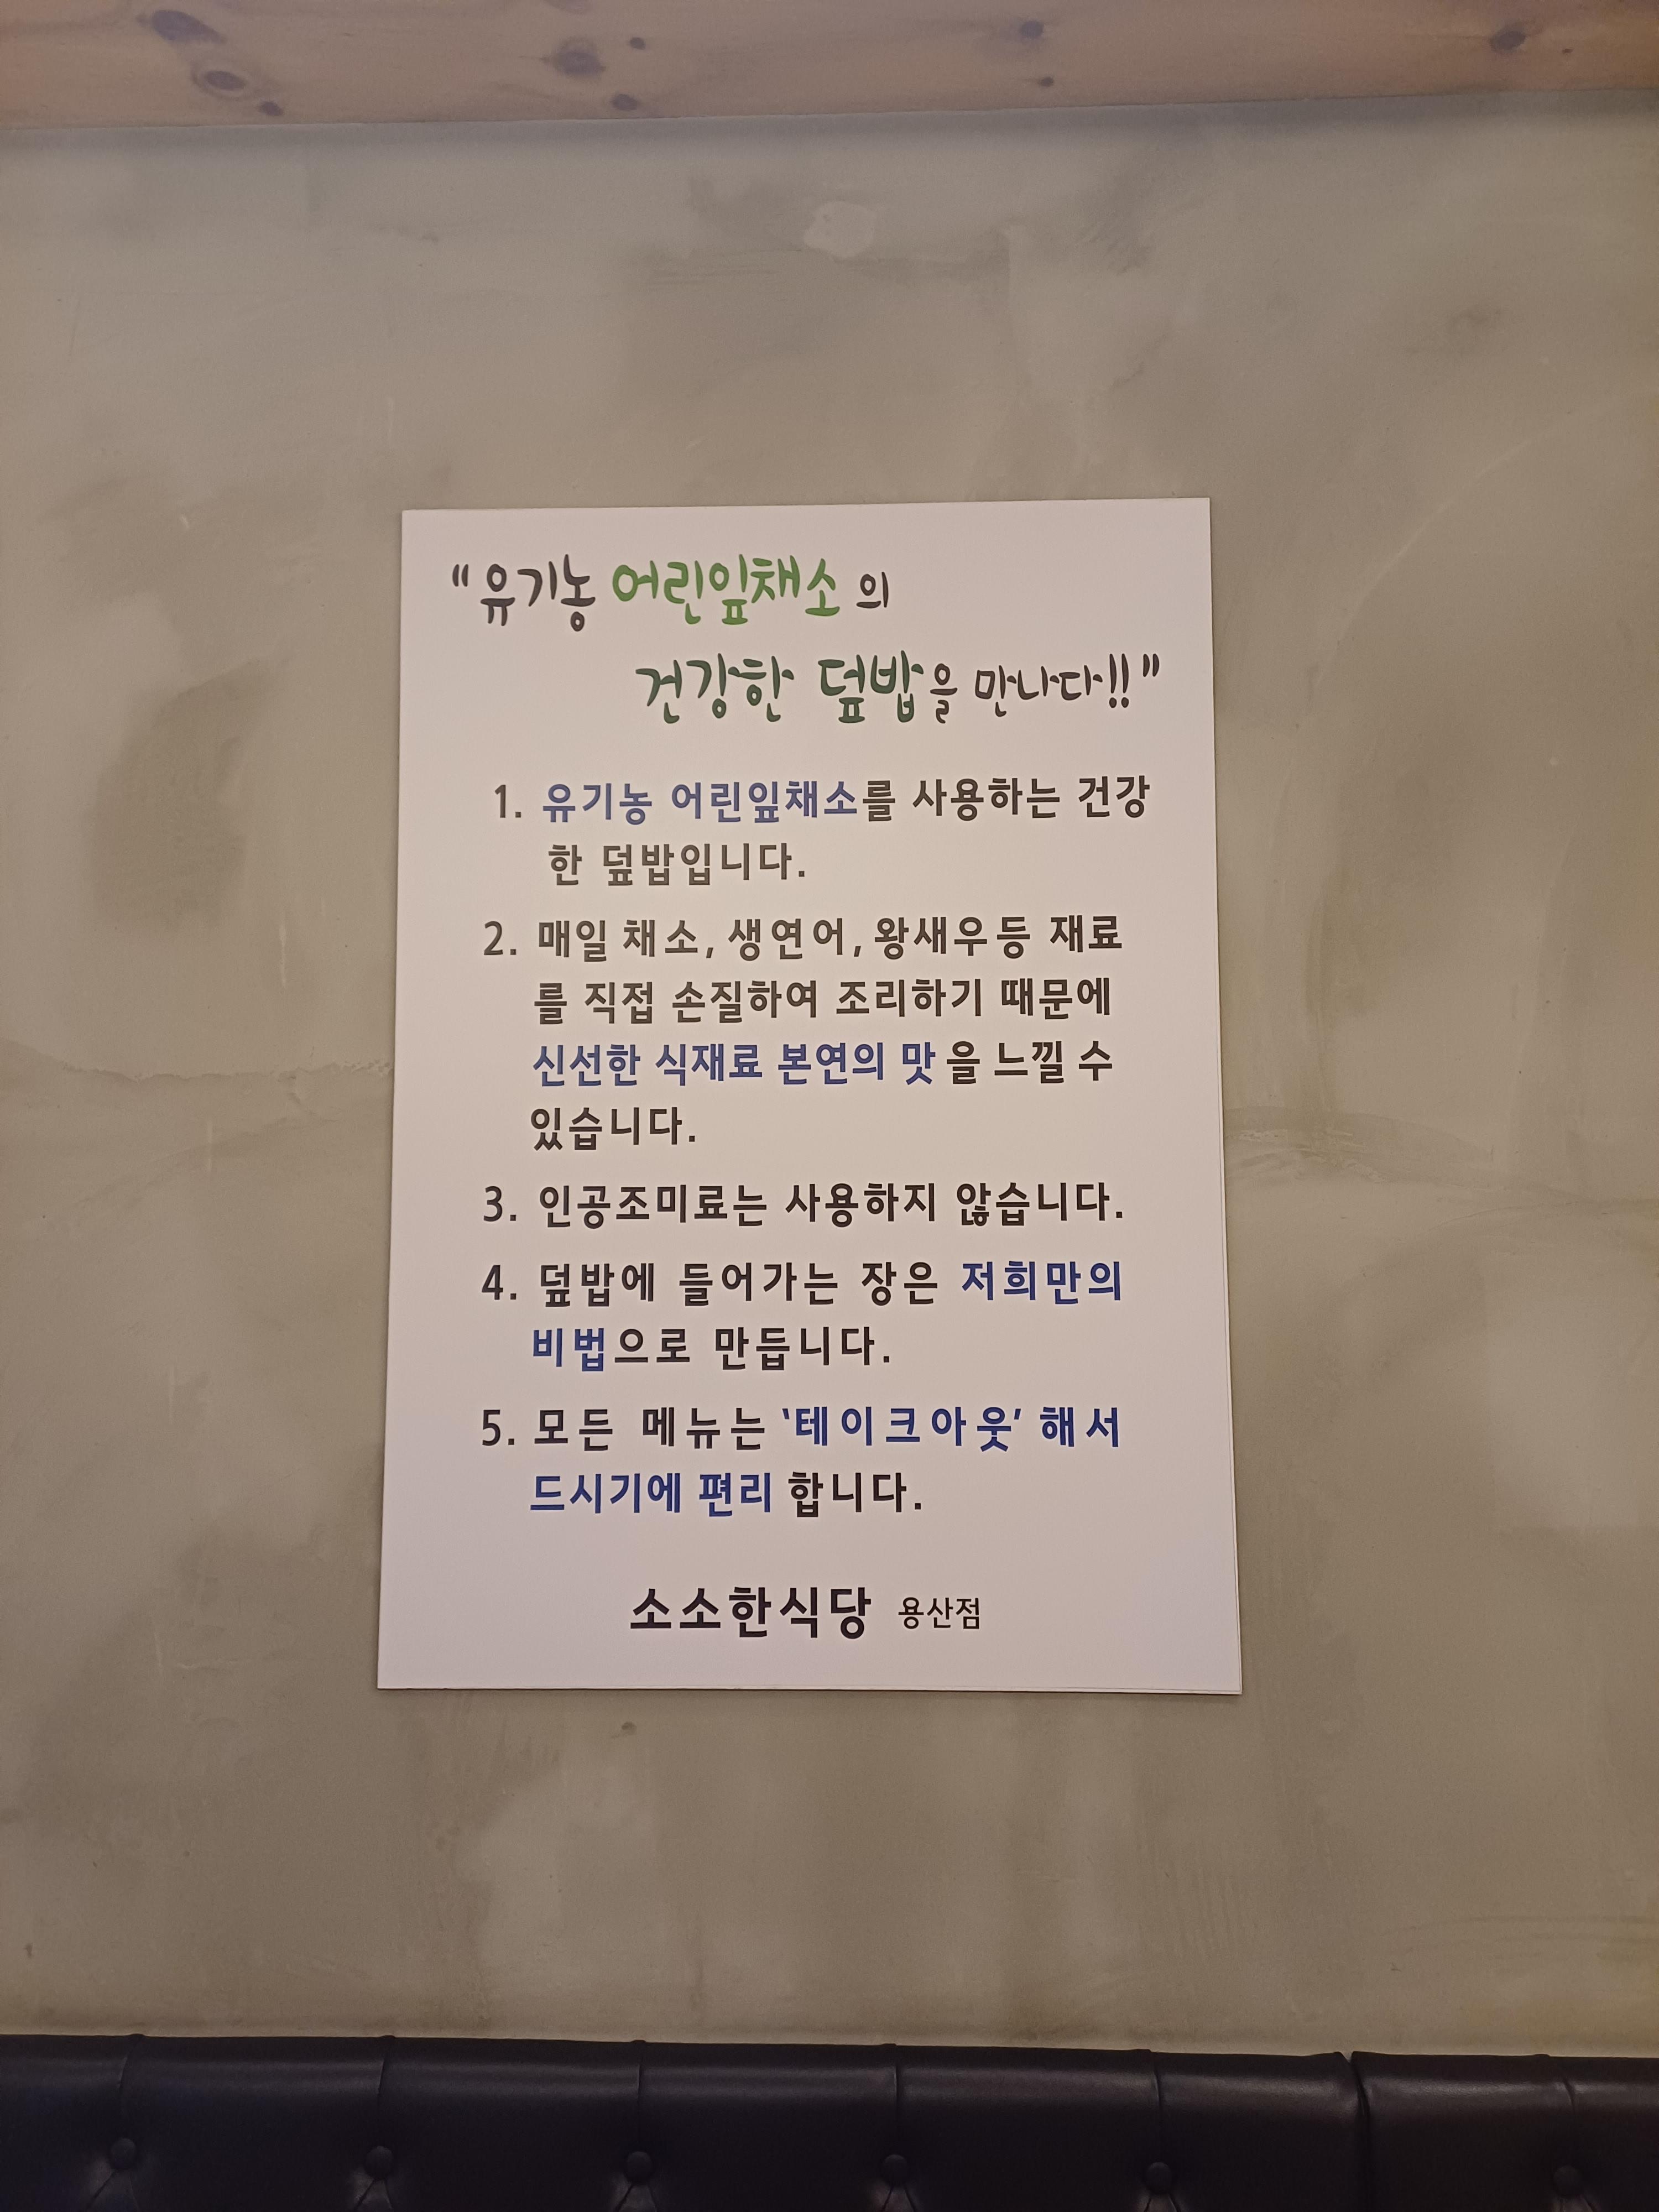 "유기농 어린잎채소의
건강한 덮밥을 만나다!!"
1. 유기농 어린잎채소를 사용하는 건강
한 덮밥입니다.
2. 매일 채소, 생연어, 왕새우등 재료
를 직접 손질하여 조리하기 때문에
신선한 식재료 본연의 맛을 느낄 수
있습니다.
3. 인공조미료는 사용하지 않습니다.
4. 덮밥에 들어가는 장은 저희만의
비법으로 만듭니다.
5. 모든 메뉴는 '테이크아웃' 해서
드시기에 편리 합니다.
소소한식당 용산점